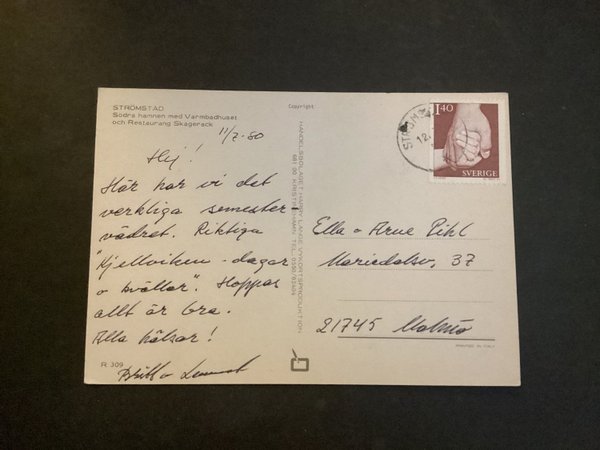 STRÖMSTAD
Södra hamnen med Varmbadhuset
och Restaurang Skagerack
11/7-80
Hej!
Här har vi det
verkliga semester-
vädret. Riktiga
"Kjellviken-dagar
o kvällar". Hoppas
allt är bra.
Alla hälsar!
Britt o Lennart
R 309
Copyright
HANDELSBOLAGET HARRY LANGE VYKORTSPRODUKTION
681 00 KRISTINEHAMN TEL.
1.40
SVERIGE
STRÖMS
12.
Ella o Arne Pihl
Mariedalsv. 37
21745 Malmö
PRINTED IN ITALY